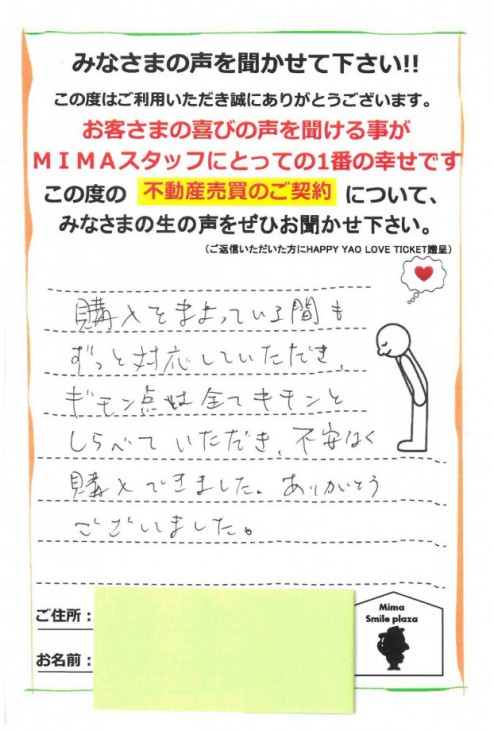 みなさまの声を聞かせて下さい!!
この度はご利用いただき誠にありがとうございます。
お客さまの喜びの声を聞ける事が
MIMAスタッフにとっての1番の幸せです
この度の 不動産売買のご契約 について、
みなさまの生の声をぜひお聞かせ下さい。
(ご返信いただいた方にHAPPY YAO LOVE TICKET贈呈)
購入をまよっている間も
ずっと対応していただき、
ギモン点は全てキチンと
しらべていただき、不安なく
購入できました。ありがとう
ございしました。
ご住所：
お名前：
Mima
Smile plaza